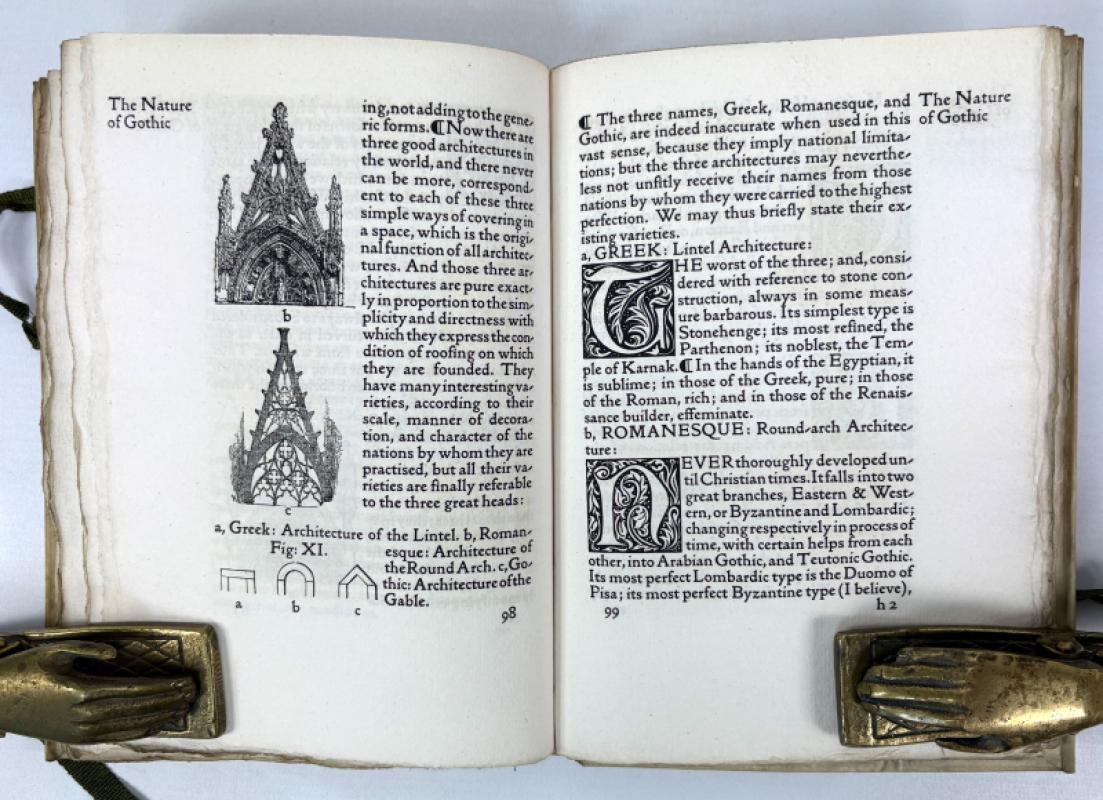 The Nature
of Gothic
b
c
ing, not adding to the gene-
ric forms. ¶ Now there are
three good architectures in
the world, and there never
can be more, correspond-
ent to each of these three
simple ways of covering in
a space, which is the origi-
nal function of all architec-
tures. And those three ar-
chitectures are pure exact-
ly in proportion to the sim-
plicity and directness with
which they express the con-
dition of roofing on which
they are founded. They
have many interesting va-
rieties, according to their
scale, manner of decora-
tion, and character of the
nations by whom they are
practised, but all their va-
rieties are finally referable
to the three great heads:
a, Greek: Architecture of the Lintel. b, Roman-
Fig: XI.
esque: Architecture of
the Round Arch. c, Go-
thic: Architecture of the
Gable.
a b c
98
The Nature
of Gothic
¶ The three names, Greek, Romanesque, and
Gothic, are indeed inaccurate when used in this
vast sense, because they imply national limita-
tions; but the three architectures may neverthe-
less not unfitly receive their names from those
nations by whom they were carried to the highest
perfection. We may thus briefly state their ex-
isting varieties.
a, GREEK: Lintel Architecture:
THE worst of the three; and, consi-
dered with reference to stone con-
struction, always in some meas-
ure barbarous. Its simplest type is
Stonehenge; its most refined, the
Parthenon; its noblest, the Tem-
ple of Karnak. ¶ In the hands of the Egyptian, it
is sublime; in those of the Greek, pure; in those
of the Roman, rich; and in those of the Renais-
sance builder, effeminate.
b, ROMANESQUE: Round-arch Architec-
ture:
NEVER thoroughly developed un-
til Christian times. It falls into two
great branches, Eastern & West-
ern, or Byzantine and Lombardic;
changing respectively in process of
time, with certain helps from each
other, into Arabian Gothic, and Teutonic Gothic.
Its most perfect Lombardic type is the Duomo of
Pisa; its most perfect Byzantine type (I believe),
99
h 2